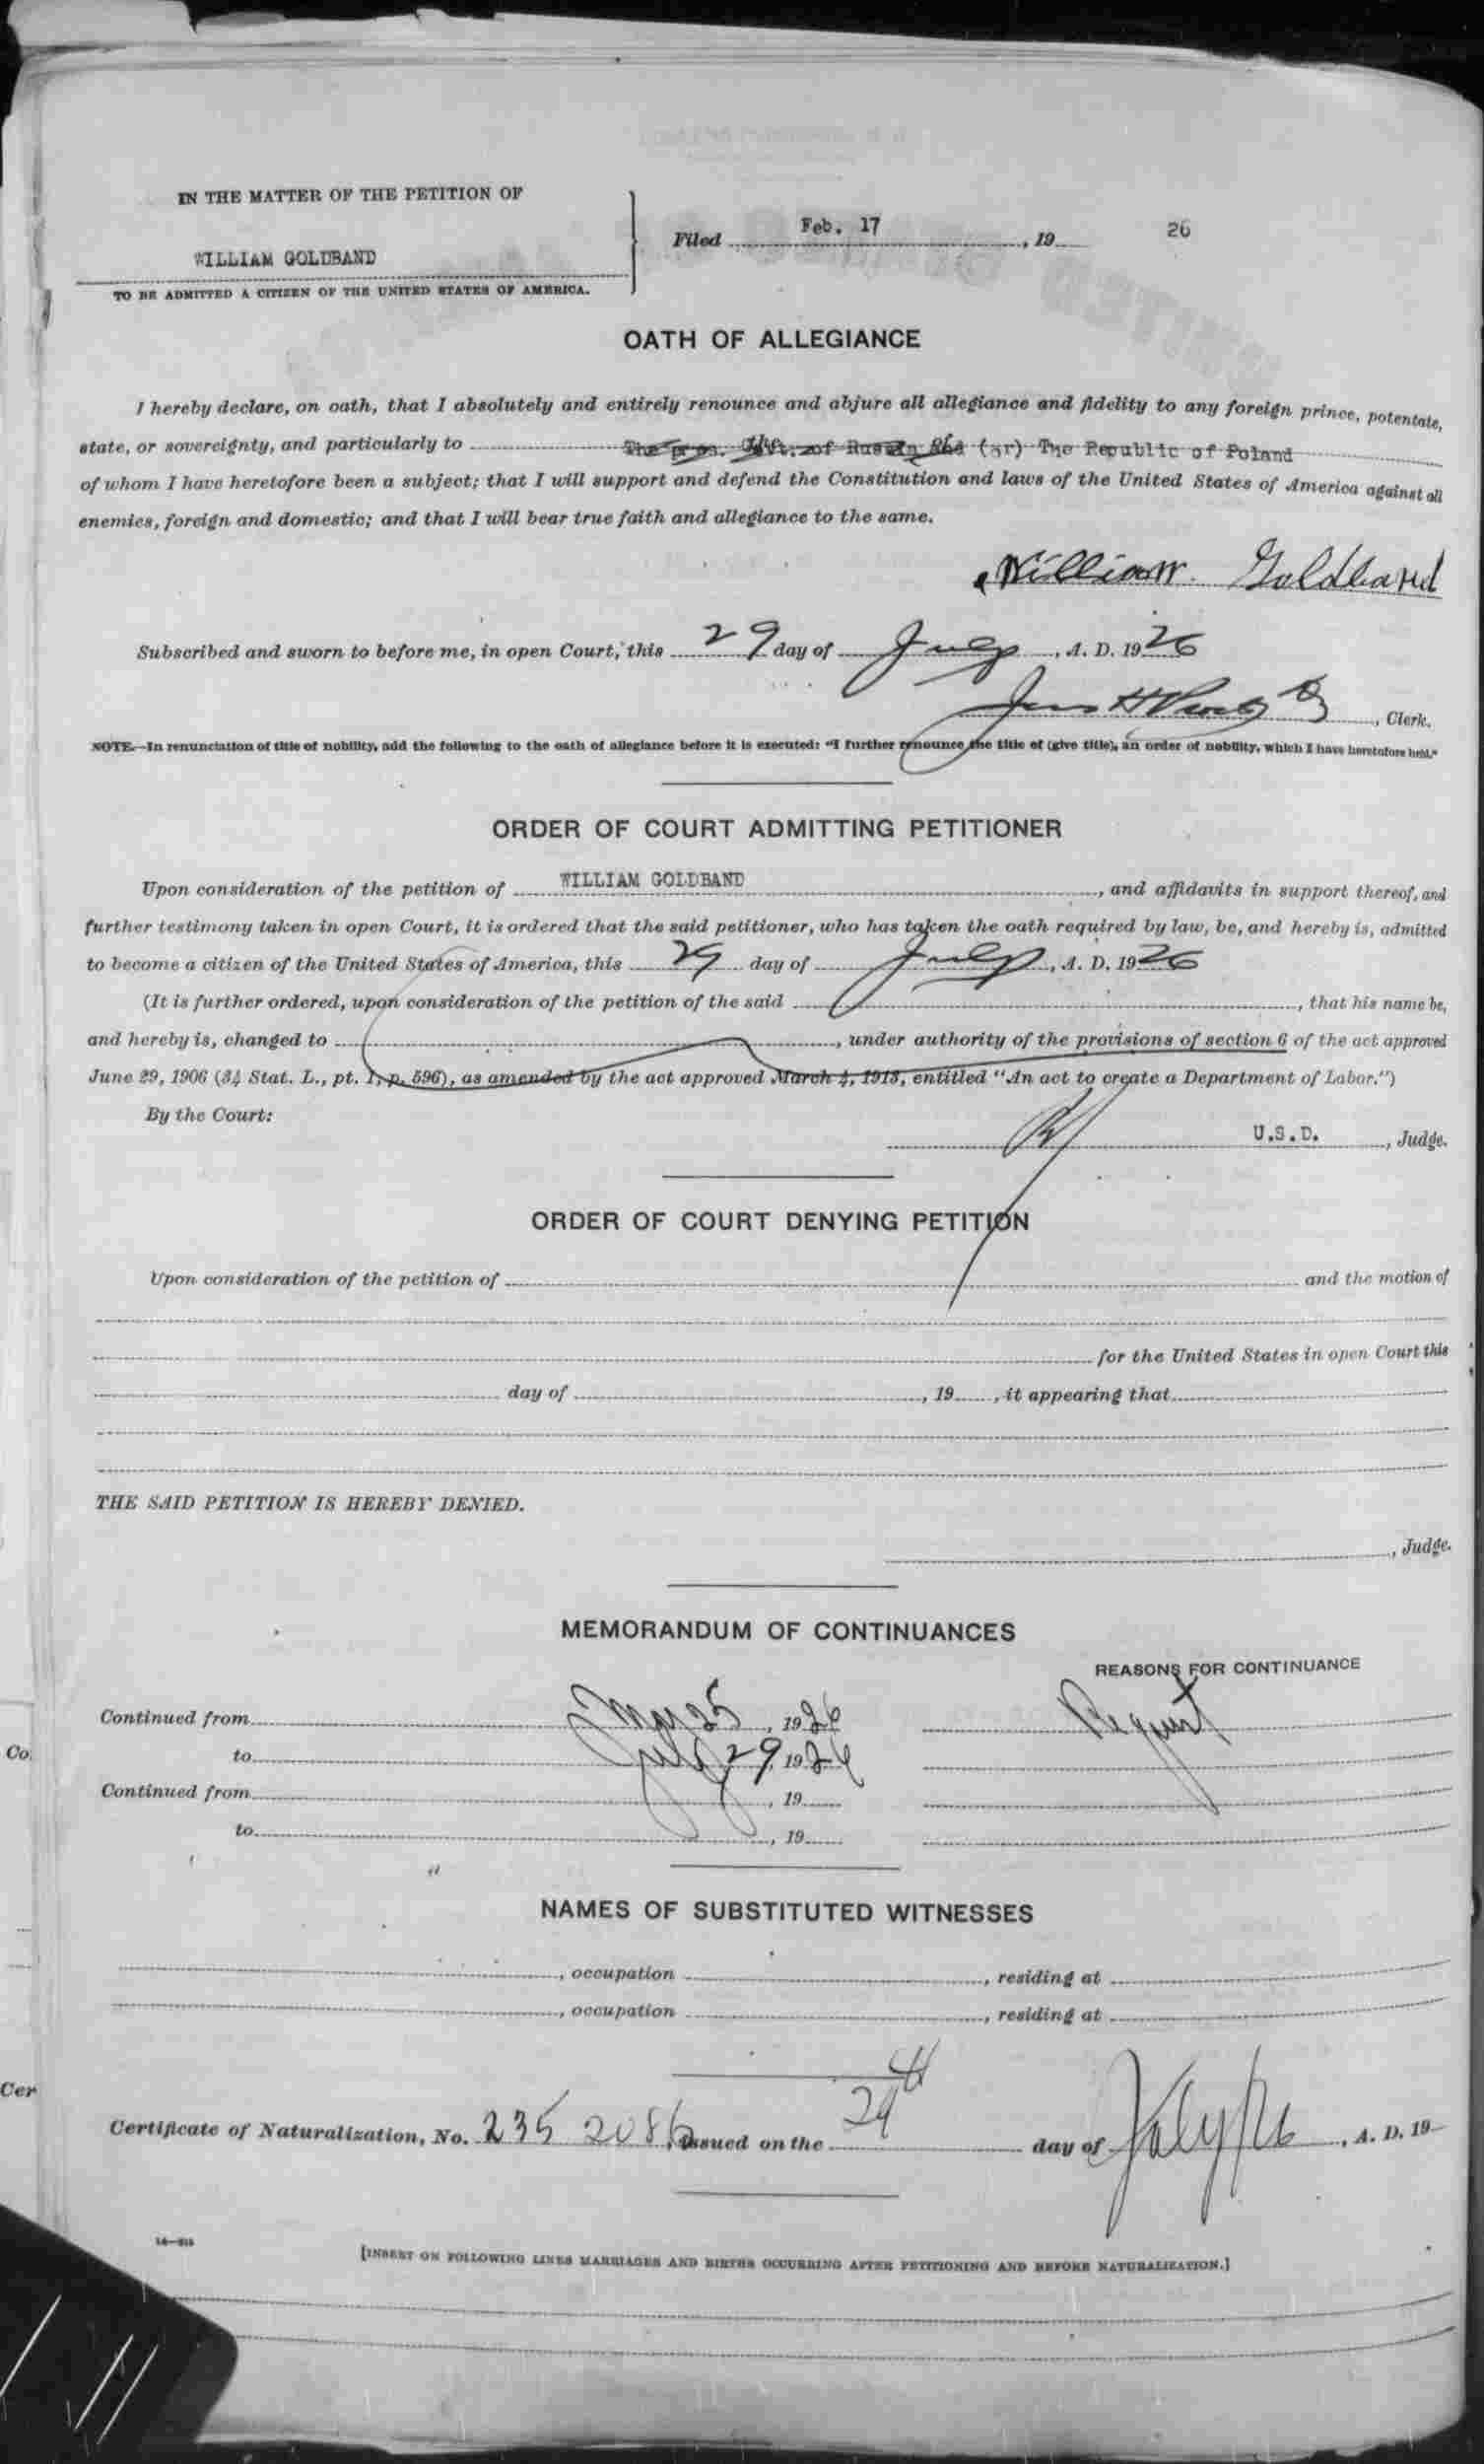 IN THE MATTER OF THE PETITION OF
WILLIAM GOLDBAND
TO BE ADMITTED A CITIZEN OF THE UNITED STATES OF AMERICA.
Filed Feb. 17, 19 26
OATH OF ALLEGIANCE
I hereby declare, on oath, that I absolutely and entirely renounce and abjure all allegiance and fidelity to any foreign prince, potentate,
state, or sovereignty, and particularly to The pres. Govt. of Russia and (or) The Republic of Poland
of whom I have heretofore been a subject; that I will support and defend the Constitution and laws of the United States of America against all
enemies, foreign and domestic; and that I will bear true faith and allegiance to the same.
William Goldband
Subscribed and sworn to before me, in open Court, this 29 day of July, A. D. 1926
, Clerk.
NOTE.—In renunciation of title of nobility, add the following to the oath of allegiance before it is executed: "I further renounce the title of (give title), an order of nobility, which I have heretofore held."
ORDER OF COURT ADMITTING PETITIONER
Upon consideration of the petition of WILLIAM GOLDBAND, and affidavits in support thereof, and
further testimony taken in open Court, it is ordered that the said petitioner, who has taken the oath required by law, be, and hereby is, admitted
to become a citizen of the United States of America, this 29 day of July, A. D. 1926
(It is further ordered, upon consideration of the petition of the said , that his name be,
and hereby is, changed to , under authority of the provisions of section 6 of the act approved
June 29, 1906 (34 Stat. L., pt. 1, p. 596), as amended by the act approved March 4, 1913, entitled "An act to create a Department of Labor.")
By the Court:
U.S.D. , Judge.
ORDER OF COURT DENYING PETITION
Upon consideration of the petition of and the motion of
for the United States in open Court this
day of , 19 , it appearing that
THE SAID PETITION IS HEREBY DENIED.
, Judge.
MEMORANDUM OF CONTINUANCES
REASONS FOR CONTINUANCE
Continued from May 25, 1926 Request
to July 29, 1926
Continued from , 19
to , 19
NAMES OF SUBSTITUTED WITNESSES
, occupation , residing at
, occupation , residing at
Certificate of Naturalization, No. 235 2086, issued on the 29th day of July/26, A. D. 19
[INSERT ON FOLLOWING LINES MARRIAGES AND BIRTHS OCCURRING AFTER PETITIONING AND BEFORE NATURALIZATION.]
Co
Cer